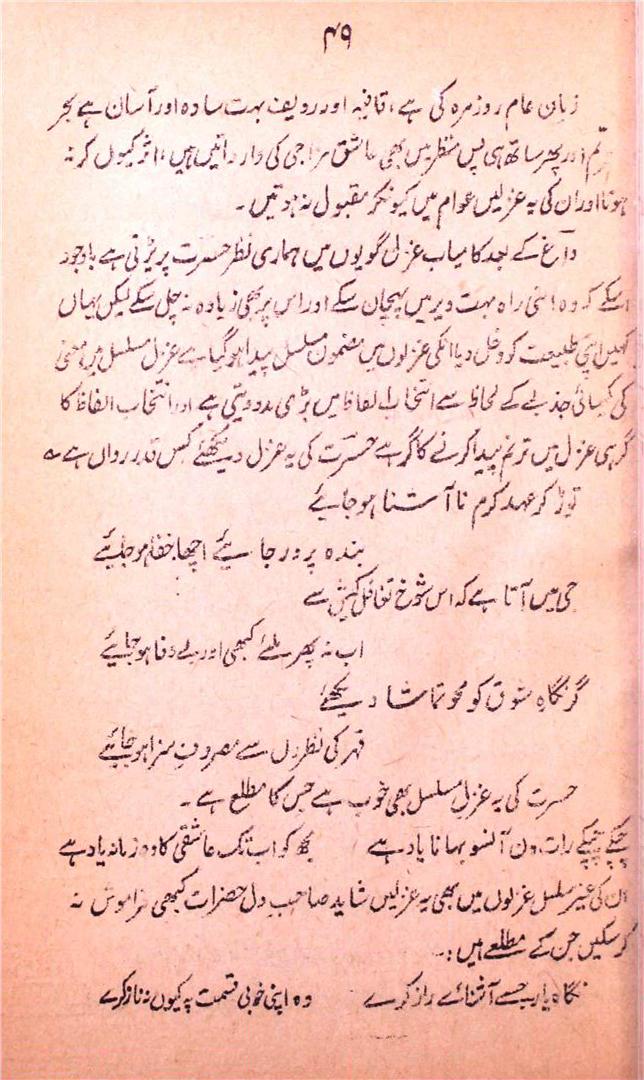 ۴۹
زبان عام روزمرہ کی ہے، قافیہ اور ردیف بہت سادہ اور آسان ہے بحر
مترنم اور پھر ساتھ ہی پس منظر میں بھی عاشق مزاجی کی وارداتیں ہیں، اثر کیوں کر نہ
ہوتا اور ان کی یہ غزلیں عوام میں کیونکر مقبول نہ ہوتیں۔
داغ کے بعد کامیاب غزل گویوں میں ہماری نظر حسرت پر پڑتی ہے باوجود
اسکے کہ وہ اپنی راہ بہت دیر میں پہچان سکے اور اس پر بھی زیادہ نہ چل سکے لیکن یہاں
کہیں اپنی طبیعت کو دخل دیا انکی غزلوں میں مضمون مسلسل پیدا ہو گیا ہے غزل مسلسل میں معنی
کی یکسانی جذبے کے لحاظ سے انتخاب الفاظ میں بڑی مدد دیتی ہے اور انتخاب الفاظ کا
گر ہی غزل میں ترنم پیدا کرنے کا گر ہے حسرت کی یہ غزل دیکھئے کس قدر رواں ہے ؎
توڑ کر عہد کرم نا آشنا ہو جائیے
بندہ پرور جائیے اچھا خفا ہو جائیے
جی میں آتا ہے کہ اس شوخ تغافل کیش سے
اب نہ پھر ملئے کبھی اور بے وفا ہو جائیے
گر نگاہِ شوق کو محو تماشا دیکھئے
قہر کی نظروں سے مصروفِ سزا ہو جائیے
حسرت کی یہ غزلِ مسلسل بھی خوب ہے جس کا مطلع ہے۔
چپکے چپکے رات دن آنسو بہانا یاد ہے مجھ کو اب تک عاشقی کا وہ زمانہ یاد ہے
ان کی غیر مسلسل غزلوں میں بھی یہ غزلیں شاید صاحبِ دل حضرات کبھی فراموش نہ
کر سکیں جن کے مطلعے ہیں:۔
نگاہ یار جسے آشنائے راز کرے وہ اپنی خوبی قسمت پہ کیوں نہ ناز کرے